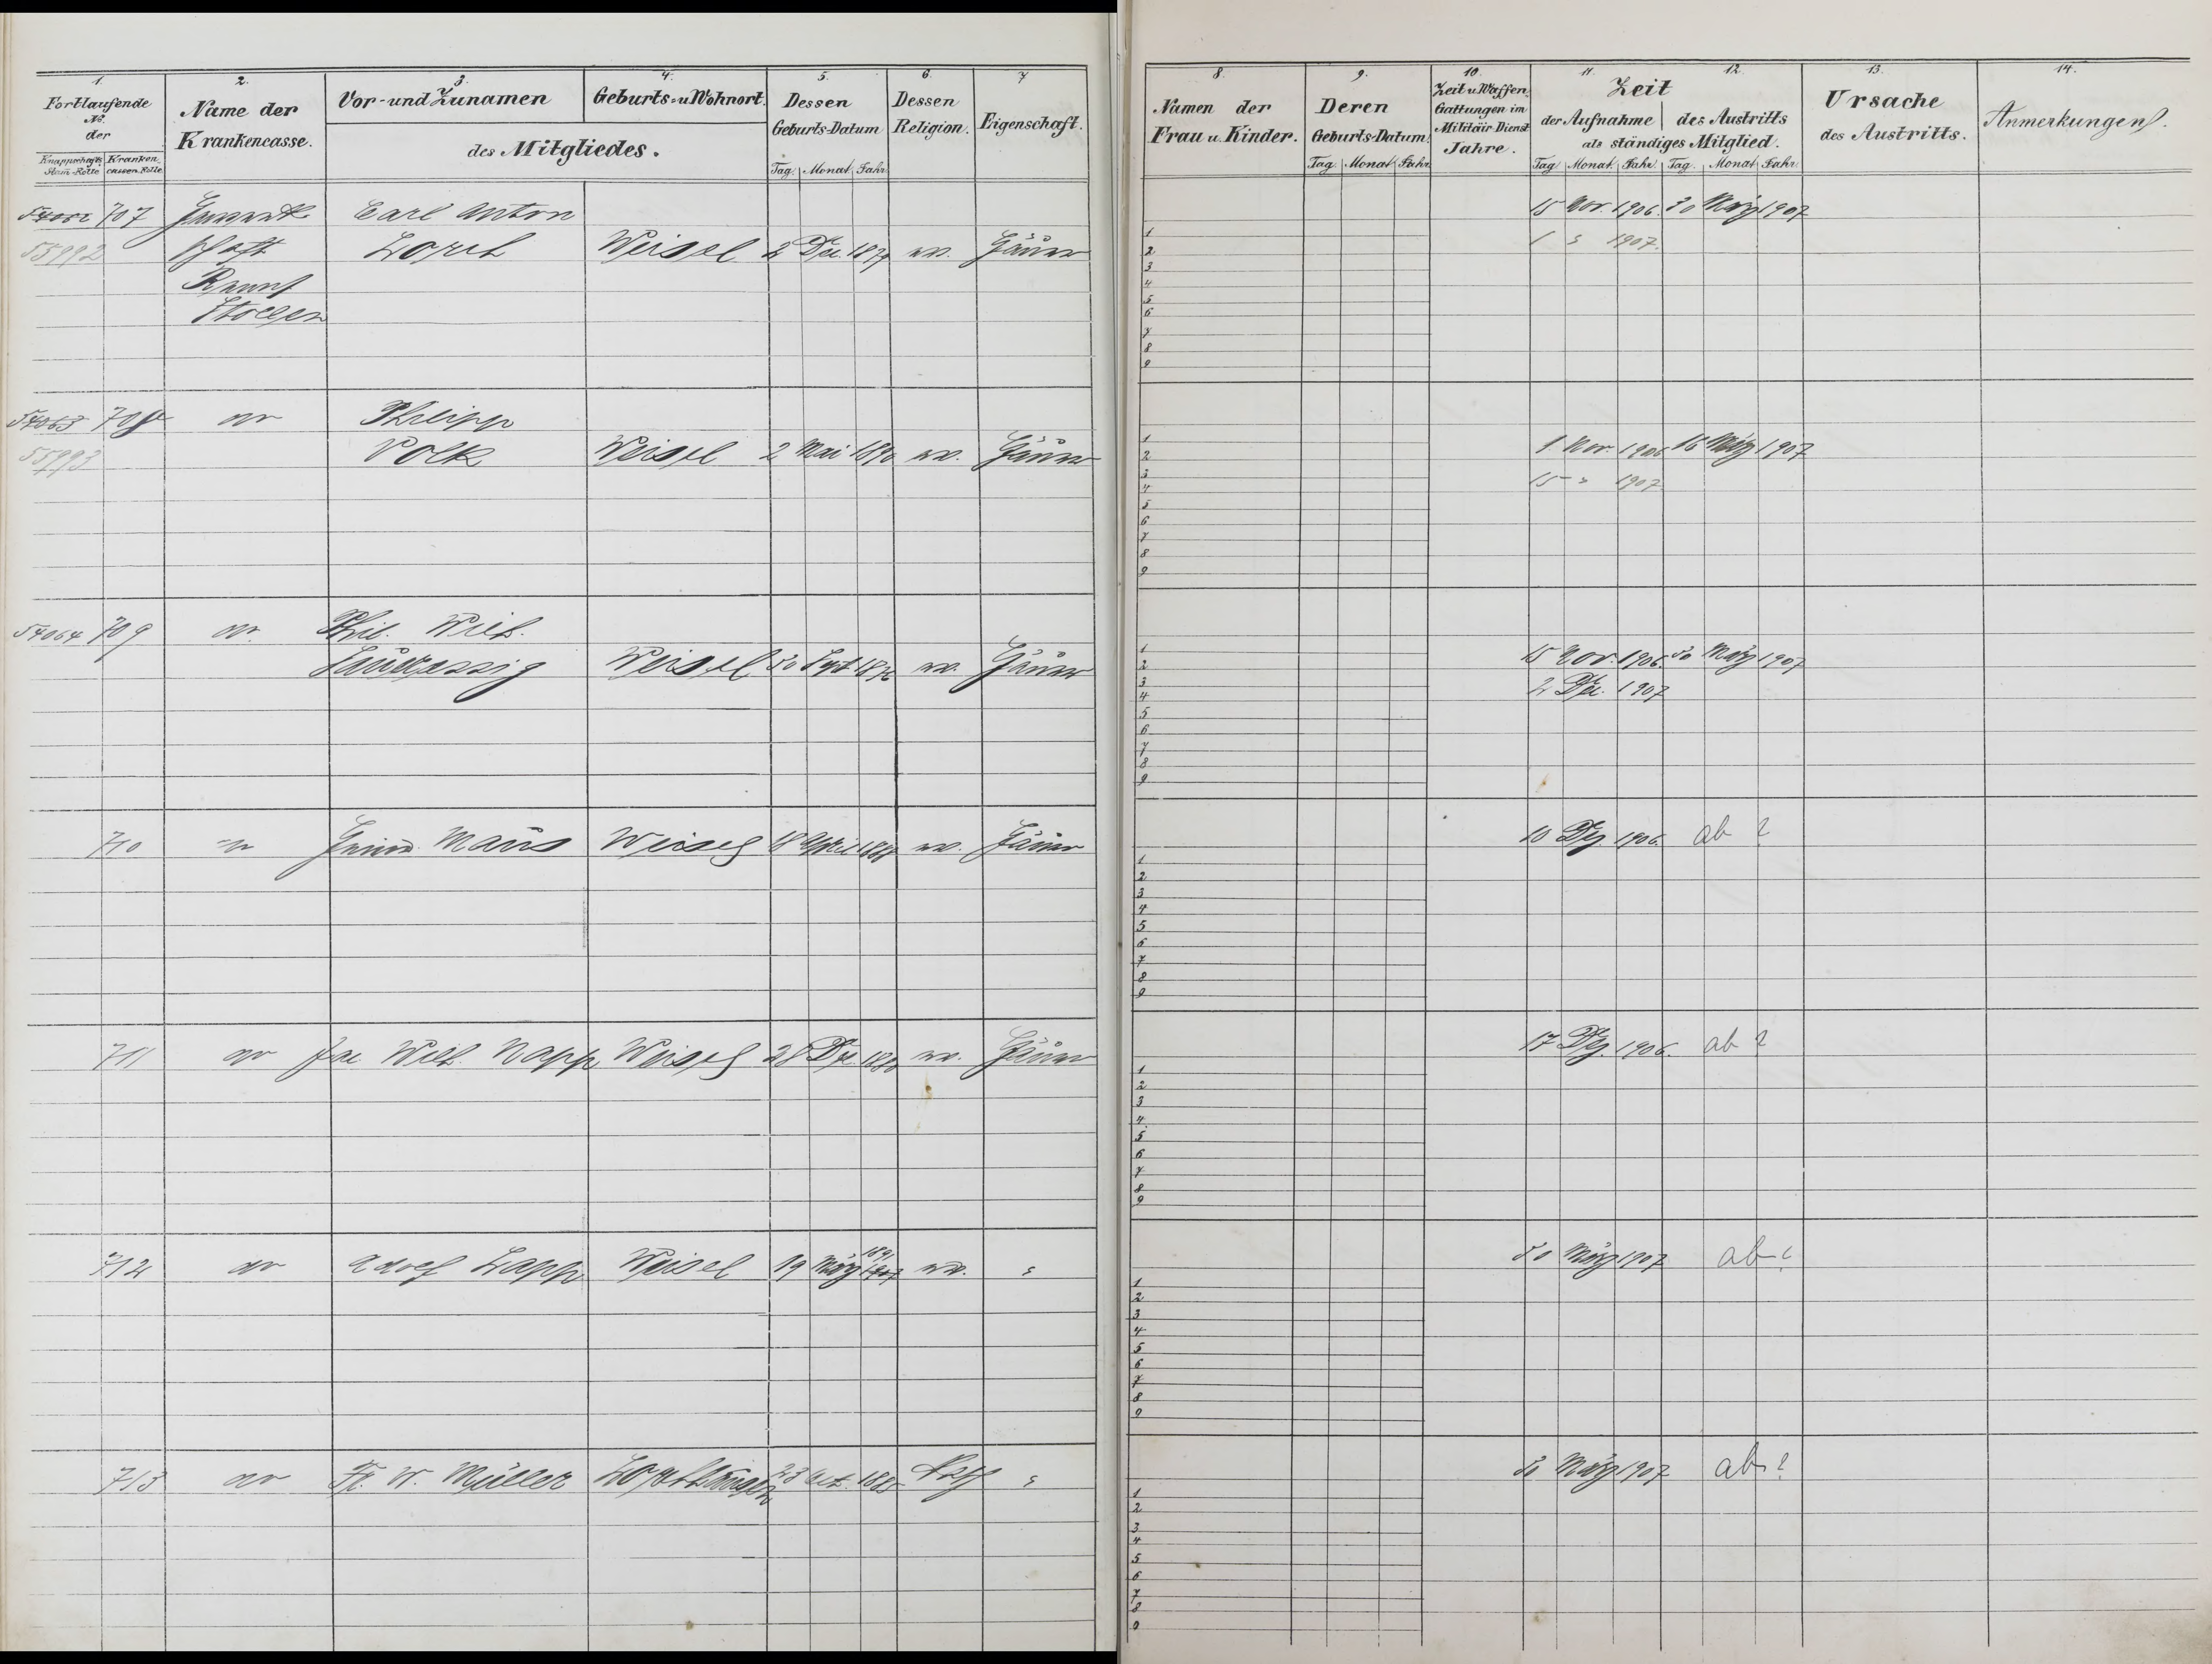 1. 2. 3. 4. 5. 6. 7
Fortlaufende No. der
Knappschafts Stam-Rolle Kranken cassen-Rolle
Name der Krankencasse.
Vor- und Zunamen
Geburts- u Wohnort.
des Mitgliedes.
Dessen Geburts-Datum
Tag. Monat Jahr
Dessen Religion.
Eigenschaft.
8. 9. 10. 11. 12. 13. 14.
Namen der Frau u. Kinder.
Deren Geburts-Datum.
Tag Monat Jahr
Zeit u Waffen Gattungen im Militair Dienst Jahre.
Zeit
der Aufnahme des Austritts
als ständiges Mitglied.
Tag Monat. Jahr. Tag. Monat Jahr
Ursache des Austritts.
Anmerkungen.
707 Gewerk Carl Anton 15 Nov. 1906. 30 März 1907
55992 schaft Lorch Weisel 2 Dez. ev. Häuer
1 1907.
Stollen
1
2
3
4
5
6
7
8
9
54063 708 Philipp
55993 Volk Weisel 2 Mai ev. Häuer 1. Nov. 1906 16 März 1907
15 1907
1
2
3
4
5
6
7
8
9
54064 709 Phil. Wilh.
Weisel 30 Sept ev. Häuer 15 Nov. 1906 30 März 1907
2 Dez. 1907
1
2
3
4
5
6
7
8
9
710 Maus Weisel 18 April ev. Häuer 10 Dez. 1906. ab ?
1
2
3
4
5
6
7
8
9
711 Jac Wilh. Napp Weisel 28 Dez ev. Häuer 17 Dez. 1906. ab ?
1
2
3
4
5
6
7
8
9
712 Adolf Zapp Weisel 19 März 1891 ev. 30 März 1907 ab ?
1
2
3
4
5
6
7
8
9
713 Fr. W. Müller 23 Oct. 1885 kath 30 März 1907 ab ?
1
2
3
4
5
6
7
8
9